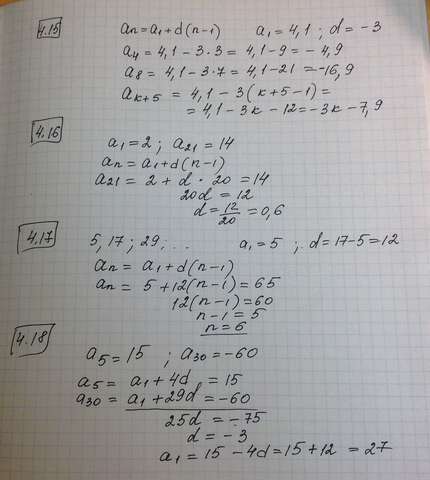 4.15 an = a1 + d(n-1) a1 = 4,1 ; d = -3
a4 = 4,1 - 3·3 = 4,1 - 9 = -4,9
a8 = 4,1 - 3·7 = 4,1 - 21 = -16,9
ak+5 = 4,1 - 3(k+5-1) =
= 4,1 - 3k - 12 = -3k - 7,9
4.16
a1 = 2 ; a21 = 14
an = a1 + d(n-1)
a21 = 2 + d · 20 = 14
20d = 12
d = 12/20 = 0,6
4.17 5, 17 ; 29 ... a1 = 5 ; d = 17-5 = 12
an = a1 + d(n-1)
an = 5 + 12(n-1) = 65
12(n-1) = 60
n-1 = 5
n = 6
4.18
a5 = 15 ; a30 = -60
a5 = a1 + 4d = 15
a30 = a1 + 29d = -60
25d = -75
d = -3
a1 = 15 - 4d = 15 + 12 = 27